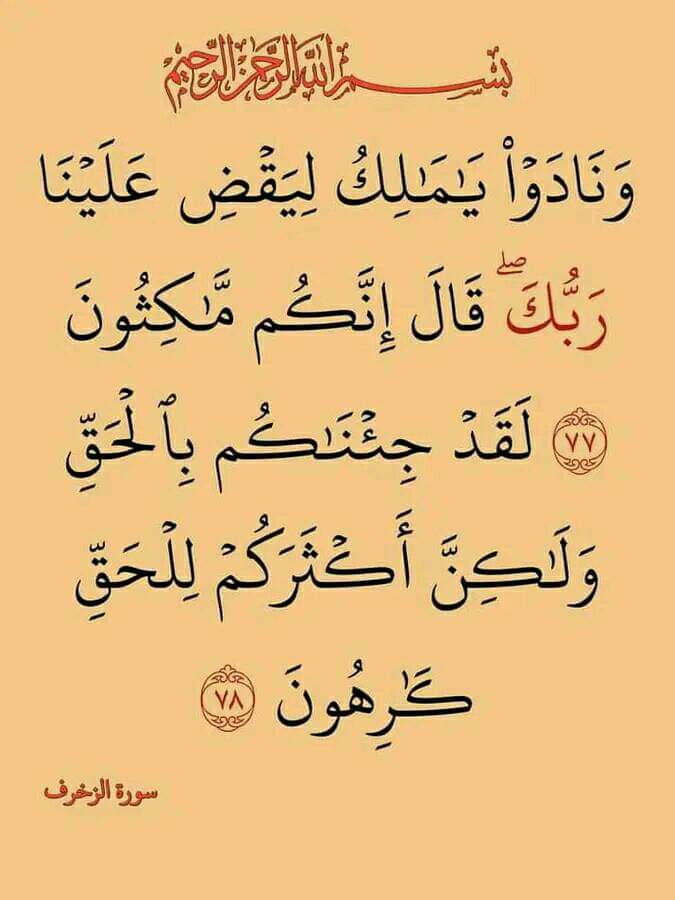 بسم الله الرحمن الرحيم
وَنَادَوْا۟ يَـٰمَـٰلِكُ لِيَقْضِ عَلَيْنَا
رَبُّكَ ۖ قَالَ إِنَّكُم مَّـٰكِثُونَ
٧٧ لَقَدْ جِئْنَـٰكُم بِٱلْحَقِّ
وَلَـٰكِنَّ أَكْثَرَكُمْ لِلْحَقِّ
كَـٰرِهُونَ ٧٨
سورة الزخرف